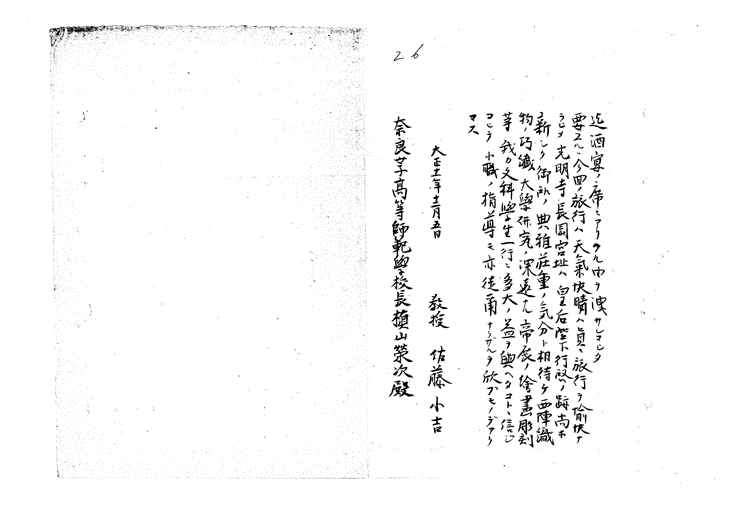 26
迄酒宴ノ席ニアリタル由ヲ洩サレマシタ
要スルニ今回ノ旅行ハ天氣快晴ハ眞ニ旅行ヲ愉快ナ
ラシメ光明寺、長岡宮址ハ皇后陛下行啓ノ跡尚ホ
新シク御所ノ典雅莊重ノ気分ト相待ケ西陣織
物ノ巧織大學研究ノ深遠ナル帝展ノ繪畫彫刻
等我ガ文科學生一行ニ多大ノ益ヲ與ヘタコトヽ信ジ
コヒテ小職ノ指導モ亦徒爾ナラザルヲ欣ブモノデアリ
マス
大正十一年十二月五日
教授 佐藤小吉
奈良女子高等師範學校長槇山榮次殿